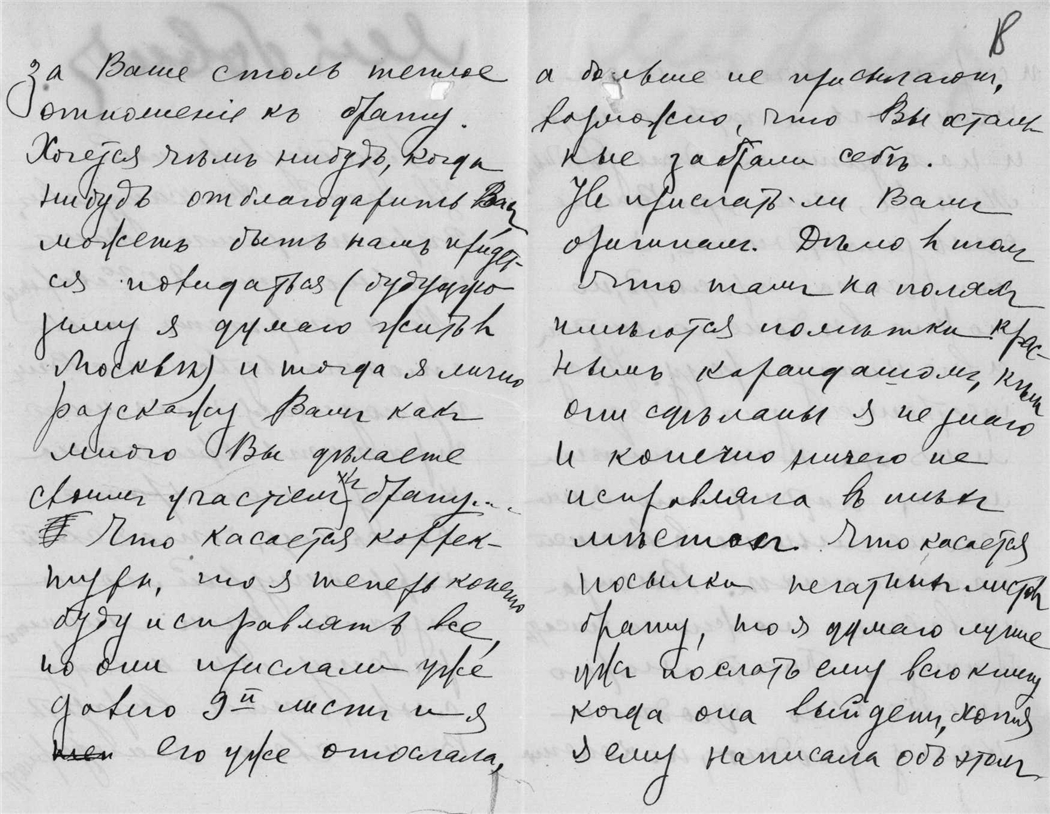 за Ваше столь теплое
отношеніе къ брату.
Хочется чѣмъ нибудь, когда
нибудь отблагодарить Васъ
можетъ быть намъ придет-
ся повидаться (будущую
зиму я думаю жить в
Москвѣ) и тогда я лично
разскажу Вамъ какъ
много Вы дѣлаете
своимъ участіемъ къ брату...
Что касается коррек-
туры, то я теперь конечно
буду исправлять всё,
но они прислали уже
давно 9й листъ и я
его уже отослала,
а больше не присылают,
возможно, что Вы осталь-
ные забрали себѣ.
Не прислать-ли Вамъ
оригинал. Дѣло в том
что тамъ на поляхъ
имѣются помѣтки крас-
нымъ карандашомъ, кѣмъ
они сдѣланы я не знаю
и конечно ничего не
исправляла в тѣхъ
мѣстахъ. Что касается
посылки печатных листов
брату, то я думаю лучше
ужъ послать ему всю книгу
когда она выйдетъ, хотя
я ему написала объ этомъ.